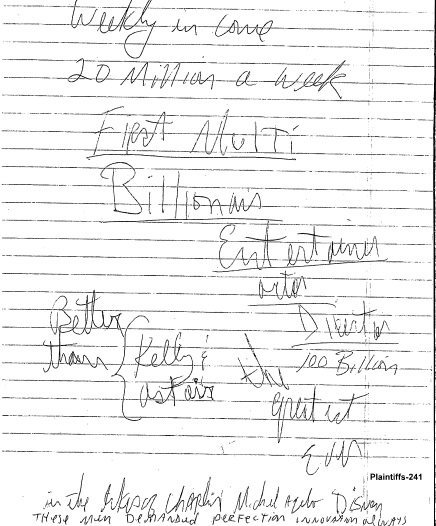 Weekly in come
20 Million a week
First Multi
Billionair
Entertainer
actor
Director
Better
than { Kelly &
astair
100 Billion
the
greatest
Ever
Plaintiffs-241
in the of Chaplin Michel Disney
THese men DemanDeD perfection innovation always